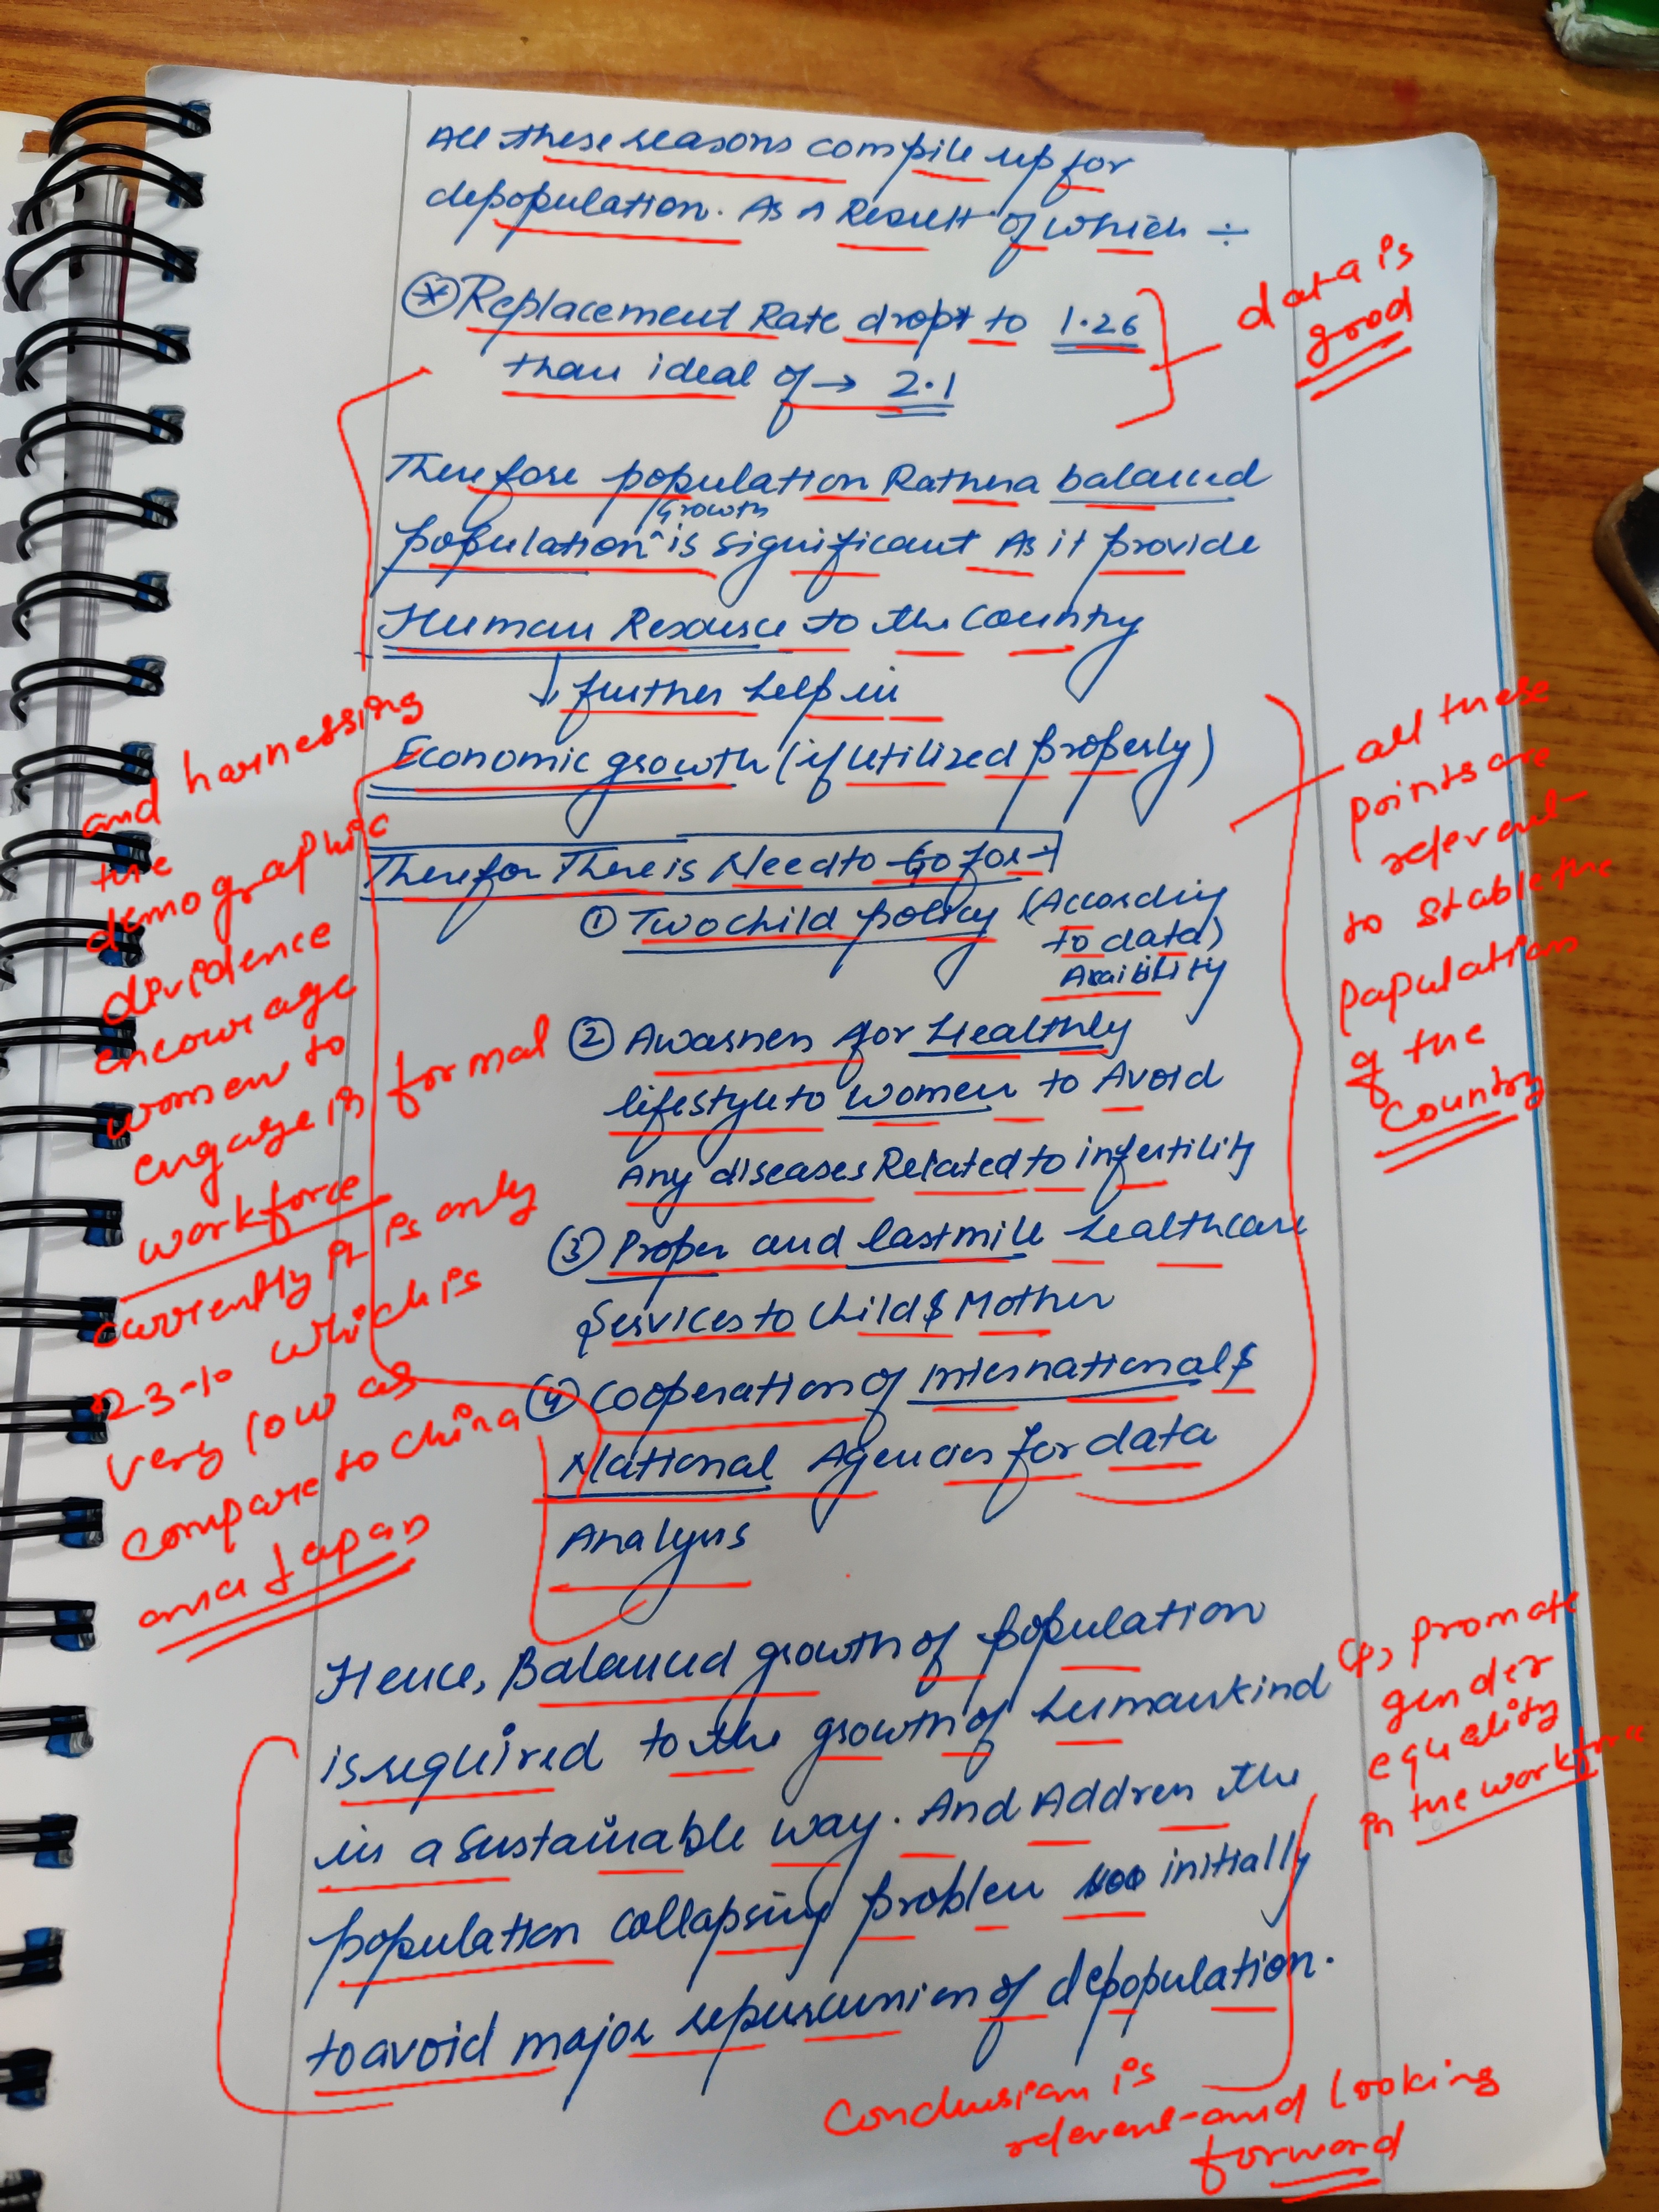 All these reasons compile up for
depopulation. As A Result of which ÷
* Replacement Rate dropt to 1.26
than ideal of → 2.1
data is
good
Therefore population Rathera balanced
growth
population ^ is significant As it provide
Human Resource to the Country
↓ further help in
Economic growth (if utilized properly)
Therefor There is Need to Go for -
① Two child policy (According
to data)
Avaibility
② Awarnes for Healthly
lifestyle to women to Avoid
Any diseases Related to infertility
③ Proper and last mile healthcare
Services to Child & Mother
④ Cooperation of International &
National Agencies for data
Analysis
all these
points are
relevent
to stable the
papulation
of the
Country
and harnessing
the
demographic
dividence
encourage
women to
engage in formal
workforce
currently it is only
23-10 which is
very low as
compare to China
and Japan
Hence, Balanced growth of population
is required to the growth of humankind
in a sustainable way. And Address the
population collapsing problem initially
to avoid major repurcunion of depopulation.
promote
gender
equality
in the workforce
Conclusion is
relevent and looking
forword